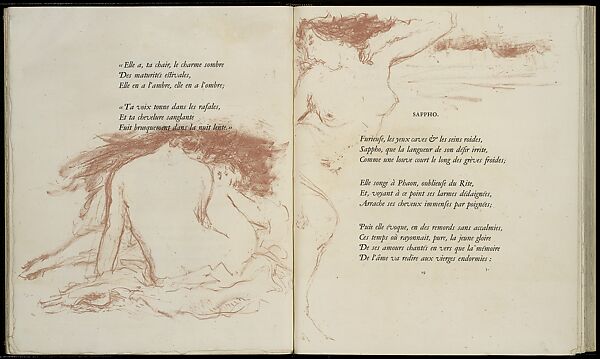 « Elle a, ta chair, le charme sombre
Des maturités estivales,
Elle en a l'ambre, elle en a l'ombre;
« Ta voix tonne dans les rafales,
Et ta chevelure sanglante
Fuit brusquement dans la nuit lente. »
SAPPHO.
Furieuse, les yeux caves & les seins roides,
Sappho, que la langueur de son désir irrite,
Comme une louve court le long des grèves froides;
Elle songe à Phaon, oublieuse du Rite,
Et, voyant à ce point ses larmes dédaignées,
Arrache ses cheveux immenses par poignées;
Puis elle évoque, en des remords sans accalmies,
Ces temps où rayonnait, pure, la jeune gloire
De ses amours chantés en vers que la mémoire
De l'âme va redire aux vierges endormies :